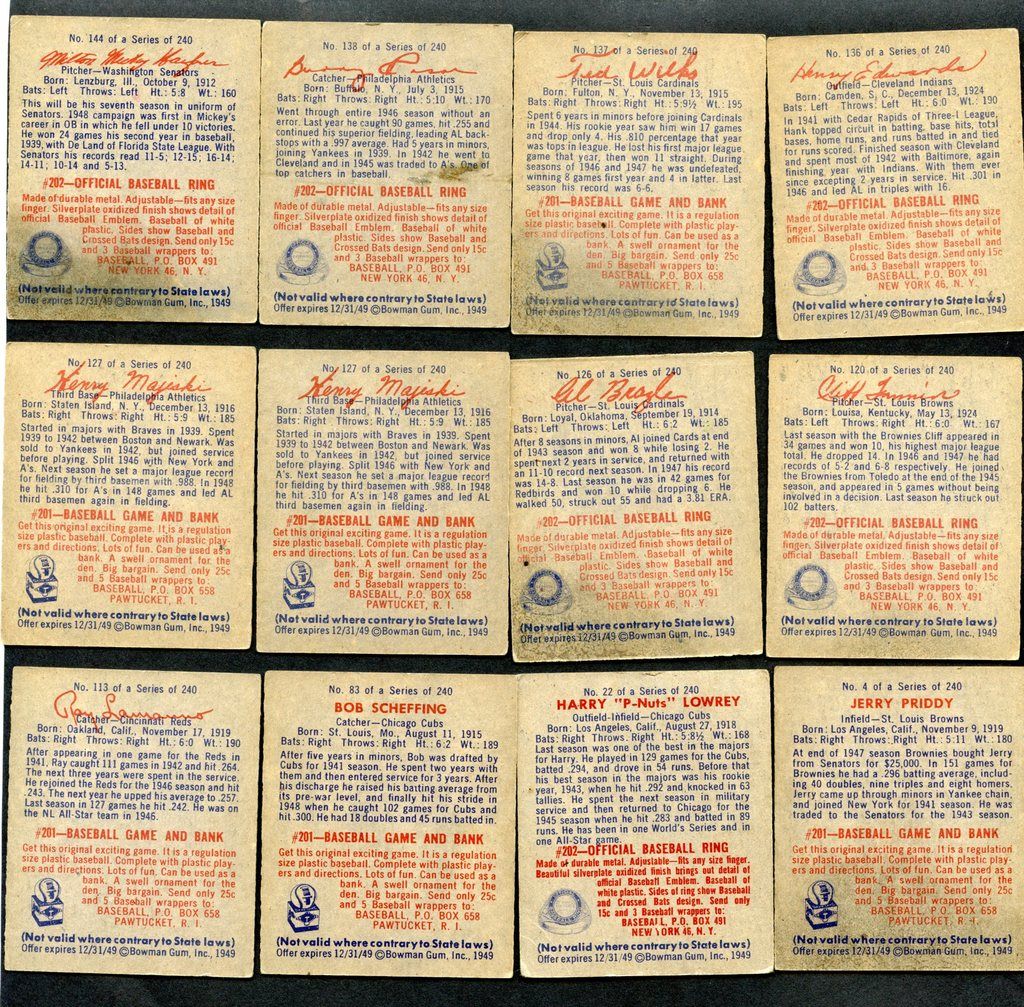 No. 144 of a Series of 240
Milton Micky Haefner
Pitcher—Washington Senators
Born: Lenzburg, Ill., October 9, 1912
Bats: Left Throws: Left Ht.: 5:8 Wt.: 160
This will be his seventh season in uniform of
Senators. 1948 campaign was first in Mickey's
career in OB in which he fell under 10 victories.
He won 24 games his second year in baseball,
1939, with De Land of Florida State League. With
Senators his records read 11-5; 12-15; 16-14;
14-11; 10-14 and 5-13.
#202—OFFICIAL BASEBALL RING
Made of durable metal. Adjustable—fits any size
finger. Silverplate oxidized finish shows detail of
official Baseball Emblem. Baseball of white
plastic. Sides show Baseball and
Crossed Bats design. Send only 15c
and 3 Baseball wrappers to:
BASEBALL, P.O. BOX 491
NEW YORK 46, N. Y.
(Not valid where contrary to State laws)
Offer expires 12/31/49 ©Bowman Gum, Inc., 1949
No. 138 of a Series of 240
Buddy Rosar
Catcher—Philadelphia Athletics
Born: Buffalo, N. Y., July 3, 1915
Bats: Right Throws: Right Ht.: 5:10 Wt.: 170
Went through entire 1946 season without an
error. Last year he caught 90 games, hit .255 and
continued his superior fielding, leading AL back-
stops with a .997 average. Had 5 years in minors,
joining Yankees in 1939. In 1942 he went to
Cleveland and in 1945 was traded to A's. One of
top catchers in baseball.
#202—OFFICIAL BASEBALL RING
Made of durable metal. Adjustable—fits any size
finger. Silverplate oxidized finish shows detail of
official Baseball Emblem. Baseball of white
plastic. Sides show Baseball and
Crossed Bats design. Send only 15c
and 3 Baseball wrappers to:
BASEBALL, P.O. BOX 491
NEW YORK 46, N. Y.
(Not valid where contrary to State laws)
Offer expires 12/31/49 ©Bowman Gum, Inc., 1949
No. 137 of a Series of 240
Ted Wilks
Pitcher—St. Louis Cardinals
Born: Fulton, N. Y., November 13, 1915
Bats: Right Throws: Right Ht.: 5:9½ Wt.: 195
Spent 6 years in minors before joining Cardinals
in 1944. His rookie year saw him win 17 games
and drop only 4. His .810 percentage that year
was tops in league. He lost his first major league
game that year, then won 11 straight. During
seasons of 1946 and 1947 he was undefeated,
winning 8 games first year and 4 in latter. Last
season his record was 6-6.
#201—BASEBALL GAME AND BANK
Get this original exciting game. It is a regulation
size plastic baseball. Complete with plastic play-
ers and directions. Lots of fun. Can be used as a
bank. A swell ornament for the
den. Big bargain. Send only 25c
and 5 Baseball wrappers to:
BASEBALL, P.O. BOX 658
PAWTUCKET, R. I.
(Not valid where contrary to State laws)
Offer expires 12/31/49 ©Bowman Gum, Inc., 1949
No. 136 of a Series of 240
Henry Edwards
Outfield—Cleveland Indians
Born: Camden, S. C., December 13, 1924
Bats: Left Throws: Left Ht.: 6:0 Wt.: 190
In 1941 with Cedar Rapids of Three-I League,
Hank topped circuit in batting, base hits, total
bases, home runs, runs batted in and tied
for runs scored. Finished season with Cleveland
and spent most of 1942 with Baltimore, again
finishing year with Indians. With them ever
since excepting 2 years in service. Hit .301 in
1946 and led AL in triples with 16.
#202—OFFICIAL BASEBALL RING
Made of durable metal. Adjustable—fits any size
finger. Silverplate oxidized finish shows detail of
official Baseball Emblem. Baseball of white
plastic. Sides show Baseball and
Crossed Bats design. Send only 15c
and 3 Baseball wrappers to:
BASEBALL, P.O. BOX 491
NEW YORK 46, N. Y.
(Not valid where contrary to State laws)
Offer expires 12/31/49 ©Bowman Gum, Inc., 1949
No. 127 of a Series of 240
Henry Majeski
Third Base—Philadelphia Athletics
Born: Staten Island, N. Y., December 13, 1916
Bats: Right Throws: Right Ht.: 5:9 Wt.: 185
Started in majors with Braves in 1939. Spent
1939 to 1942 between Boston and Newark. Was
sold to Yankees in 1942, but joined service
before playing. Split 1946 with New York and
A's. Next season he set a major league record
for fielding by third basemen with .988. In 1948
he hit .310 for A's in 148 games and led AL
third basemen again in fielding.
#201—BASEBALL GAME AND BANK
Get this original exciting game. It is a regulation
size plastic baseball. Complete with plastic play-
ers and directions. Lots of fun. Can be used as a
bank. A swell ornament for the
den. Big bargain. Send only 25c
and 5 Baseball wrappers to:
BASEBALL, P.O. BOX 658
PAWTUCKET, R. I.
(Not valid where contrary to State laws)
Offer expires 12/31/49 ©Bowman Gum, Inc., 1949
No. 127 of a Series of 240
Henry Majeski
Third Base—Philadelphia Athletics
Born: Staten Island, N. Y., December 13, 1916
Bats: Right Throws: Right Ht.: 5:9 Wt.: 185
Started in majors with Braves in 1939. Spent
1939 to 1942 between Boston and Newark. Was
sold to Yankees in 1942, but joined service
before playing. Split 1946 with New York and
A's. Next season he set a major league record
for fielding by third basemen with .988. In 1948
he hit .310 for A's in 148 games and led AL
third basemen again in fielding.
#201—BASEBALL GAME AND BANK
Get this original exciting game. It is a regulation
size plastic baseball. Complete with plastic play-
ers and directions. Lots of fun. Can be used as a
bank. A swell ornament for the
den. Big bargain. Send only 25c
and 5 Baseball wrappers to:
BASEBALL, P.O. BOX 658
PAWTUCKET, R. I.
(Not valid where contrary to State laws)
Offer expires 12/31/49 ©Bowman Gum, Inc., 1949
No. 126 of a Series of 240
Al Brazle
Pitcher—St. Louis Cardinals
Born: Loyal, Oklahoma, September 19, 1914
Bats: Left Throws: Left Ht.: 6:2 Wt.: 185
After 8 seasons in minors, Al joined Cards at end
of 1943 season and won 8 while losing 2. He
spent next 2 years in service, and returned with
an 11-10 record next season. In 1947 his record
was 14-8. Last season he was in 42 games for
Redbirds and won 10 while dropping 6. He
walked 50, struck out 55 and had a 3.81 ERA.
#202—OFFICIAL BASEBALL RING
Made of durable metal. Adjustable—fits any size
finger. Silverplate oxidized finish shows detail of
official Baseball Emblem. Baseball of white
plastic. Sides show Baseball and
Crossed Bats design. Send only 15c
and 3 Baseball wrappers to:
BASEBALL, P.O. BOX 491
NEW YORK 46, N. Y.
(Not valid where contrary to State laws)
Offer expires 12/31/49 ©Bowman Gum, Inc., 1949
No. 120 of a Series of 240
Cliff Fannin
Pitcher—St. Louis Browns
Born: Louisa, Kentucky, May 13, 1924
Bats: Left Throws: Right Ht.: 6:0 Wt.: 167
Last season with the Brownies Cliff appeared in
34 games and won 10, his highest major league
total. He dropped 14. In 1946 and 1947 he had
records of 5-2 and 6-8 respectively. He joined
the Brownies from Toledo at the end of the 1945
season, and appeared in 5 games without being
involved in a decision. Last season he struck out
102 batters.
#202—OFFICIAL BASEBALL RING
Made of durable metal. Adjustable—fits any size
finger. Silverplate oxidized finish shows detail of
official Baseball Emblem. Baseball of white
plastic. Sides show Baseball and
Crossed Bats design. Send only 15c
and 3 Baseball wrappers to:
BASEBALL, P.O. BOX 491
NEW YORK 46, N. Y.
(Not valid where contrary to State laws)
Offer expires 12/31/49 ©Bowman Gum, Inc., 1949
No. 113 of a Series of 240
Ray Lamanno
Catcher—Cincinnati Reds
Born: Oakland, Calif., November 17, 1919
Bats: Right Throws: Right Ht.: 6:0 Wt.: 190
After appearing in one game for the Reds in
1941, Ray caught 111 games in 1942 and hit .264.
The next three years were spent in the service.
He rejoined the Reds for the 1946 season and hit
.243. The next year he upped his average to .257.
Last season in 127 games he hit .242. He was on
the NL All-Star team in 1946.
#201—BASEBALL GAME AND BANK
Get this original exciting game. It is a regulation
size plastic baseball. Complete with plastic play-
ers and directions. Lots of fun. Can be used as a
bank. A swell ornament for the
den. Big bargain. Send only 25c
and 5 Baseball wrappers to:
BASEBALL, P.O. BOX 658
PAWTUCKET, R. I.
(Not valid where contrary to State laws)
Offer expires 12/31/49 ©Bowman Gum, Inc., 1949
No. 83 of a Series of 240
BOB SCHEFFING
Catcher—Chicago Cubs
Born: St. Louis, Mo., August 11, 1915
Bats: Right Throws: Right Ht.: 6:2 Wt.: 189
After five years in minors, Bob was drafted by
Cubs for 1941 season. He spent two years with
them and then entered service for 3 years. After
his discharge he raised his batting average from
its pre-war level, and finally hit his stride in
1948 when he caught 102 games for Cubs and
hit .300. He had 18 doubles and 45 runs batted in.
#201—BASEBALL GAME AND BANK
Get this original exciting game. It is a regulation
size plastic baseball. Complete with plastic play-
ers and directions. Lots of fun. Can be used as a
bank. A swell ornament for the
den. Big bargain. Send only 25c
and 5 Baseball wrappers to:
BASEBALL, P.O. BOX 658
PAWTUCKET, R. I.
(Not valid where contrary to State laws)
Offer expires 12/31/49 ©Bowman Gum, Inc., 1949
No. 22 of a Series of 240
HARRY "P-Nuts" LOWREY
Outfield-Infield—Chicago Cubs
Born: Los Angeles, Calif., August 27, 1918
Bats: Right Throws: Right Ht.: 5:8½ Wt.: 168
Last season was one of the best in the majors
for Harry. He played in 129 games for the Cubs,
batted .294, and drove in 54 runs. Before that
his best season in the majors was his rookie
year, 1943, when he hit .292 and knocked in 63
tallies. He spent the next season in military
service and then returned to Chicago for the
1945 season when he hit .283 and batted in 89
runs. He has been in one World's Series and in
one All-Star game.
#202—OFFICIAL BASEBALL RING
Made of durable metal. Adjustable—fits any size finger.
Beautiful silverplate oxidized finish brings out detail of
official Baseball Emblem. Baseball of
white plastic. Sides of ring show Baseball
and Crossed Bats design. Send only
15c and 3 Baseball wrappers to:
BASEBALL, P.O. BOX 491
NEW YORK 46, N. Y.
(Not valid where contrary to State laws)
Offer expires 12/31/49 ©Bowman Gum, Inc., 1949
No. 4 of a Series of 240
JERRY PRIDDY
Infield—St. Louis Browns
Born: Los Angeles, Calif., November 9, 1919
Bats: Right Throws: Right Ht.: 5:11 Wt.: 180
At end of 1947 season Brownies bought Jerry
from Senators for $25,000. In 151 games for
Brownies he had a .296 batting average, includ-
ing 40 doubles, nine triples and eight homers.
Jerry came up through minors in Yankee chain,
and joined New York for 1941 season. He was
traded to the Senators for the 1943 season.
#201—BASEBALL GAME AND BANK
Get this original exciting game. It is a regulation
size plastic baseball. Complete with plastic play-
ers and directions. Lots of fun. Can be used as a
bank. A swell ornament for the
den. Big bargain. Send only 25c
and 5 Baseball wrappers to:
BASEBALL, P.O. BOX 658
PAWTUCKET, R. I.
(Not valid where contrary to State laws)
Offer expires 12/31/49 ©Bowman Gum, Inc., 1949